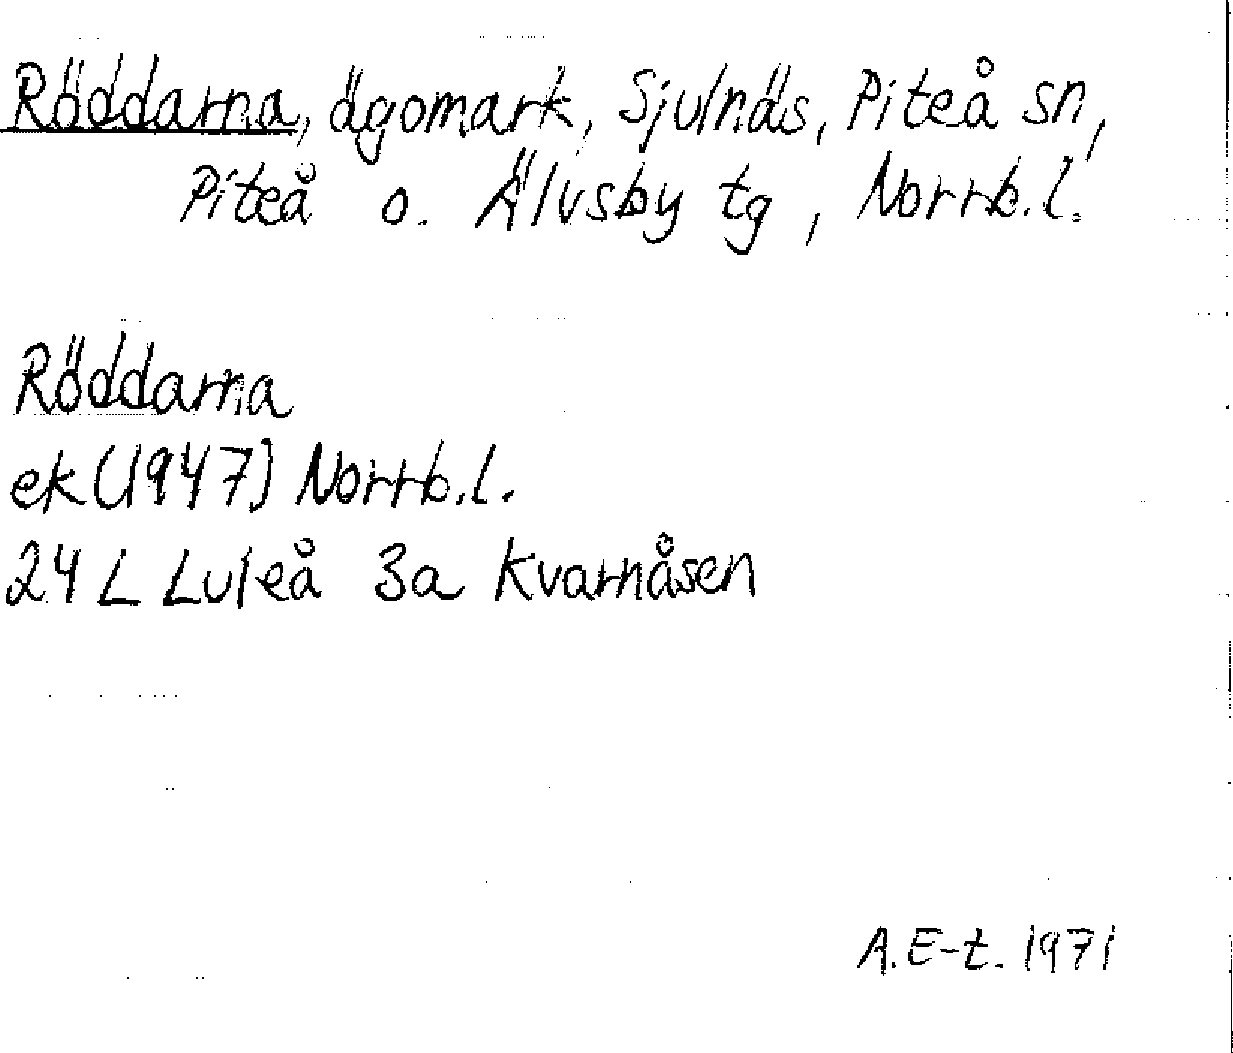 Röddarna, ägomark, Sjulnäs, Piteå sn,
Piteå o. Älvsby tg, Norrb.l.
Röddarna
ek (1947) Norrb.l.
24 L Luleå 3a Kvarnåsen
A.E-t. 1971